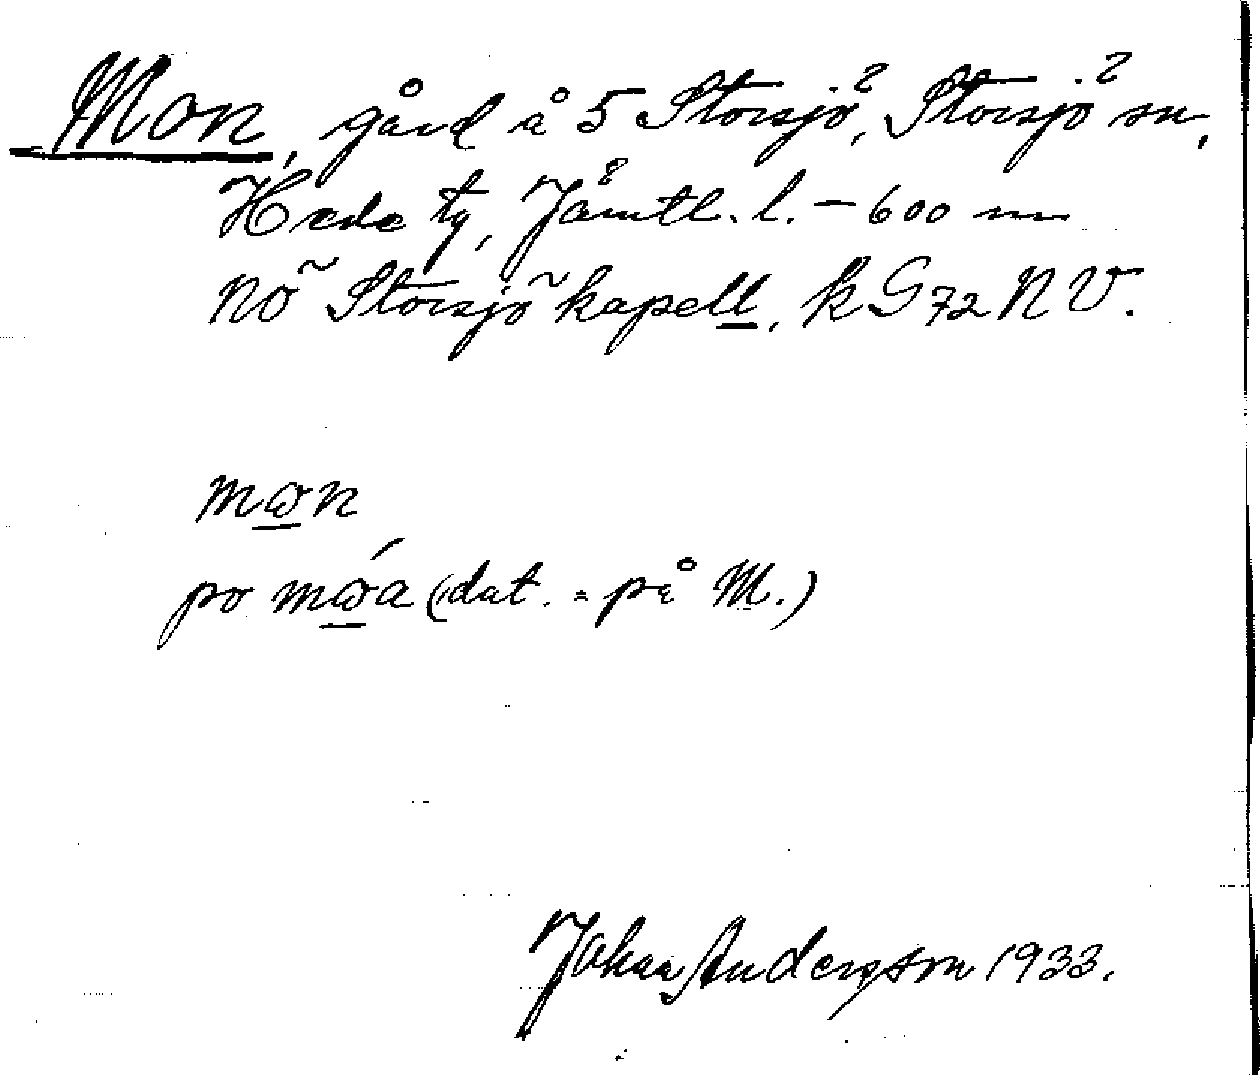 Mon, gård å 5 Storsjö, Storsjö sn,
Hede tg, Jämtl. l. – 600 m
NÖ Storsjö kapell, k G72 NV.
mωn
po mωa (dat. = på M.)
Johan Anderson 1933.